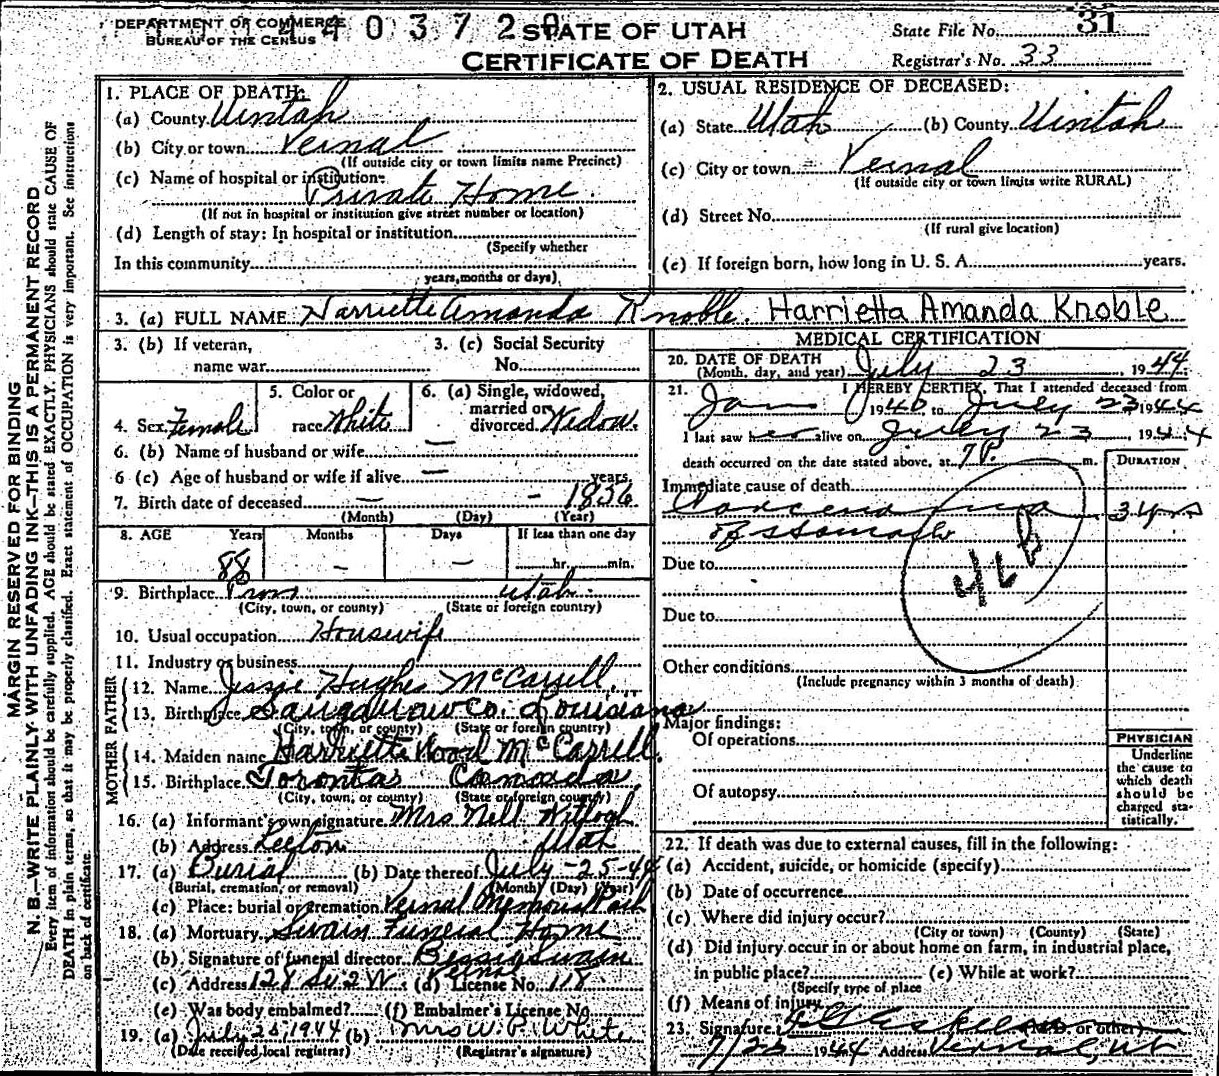 DEPARTMENT OF COMMERCE
BUREAU OF THE CENSUS
4 4 0 3 7 2
STATE OF UTAH
CERTIFICATE OF DEATH
State File No. 31
Registrar's No. 33
MARGIN RESERVED FOR BINDING
N. B.—WRITE PLAINLY WITH UNFADING INK—THIS IS A PERMANENT RECORD
Every item of information should be carefully supplied. AGE should be stated EXACTLY. PHYSICIANS should state CAUSE OF
DEATH in plain terms, so that it may be properly classified. Exact statement of OCCUPATION is very important. See instructions
on back of certificate.
1. PLACE OF DEATH:
(a) County Uintah
(b) City or town Vernal
(If outside city or town limits name Precinct)
(c) Name of hospital or institution:
Private Home
(If not in hospital or institution give street number or location)
(d) Length of stay: In hospital or institution
(Specify whether
In this community
years, months or days)
2. USUAL RESIDENCE OF DECEASED:
(a) State Utah (b) County Uintah
(c) City or town Vernal
(If outside city or town limits write RURAL)
(d) Street No.
(If rural give location)
(e) If foreign born, how long in U. S. A. years.
3. (a) FULL NAME Harriette Amanda Knoble. Harrietta Amanda Knoble
3. (b) If veteran, 3. (c) Social Security
name war No.
4. Sex Female
5. Color or
race White
6. (a) Single, widowed,
married or
divorced Widow.
6. (b) Name of husband or wife —
6 (c) Age of husband or wife if alive — years
7. Birth date of deceased — - 1856
(Month) (Day) (Year)
8. AGE Years Months Days If less than one day
88 — — hr. min.
9. Birthplace Utah
(City, town, or county) (State or foreign country)
10. Usual occupation Housewife
11. Industry or business
FATHER
12. Name Jessie Hughes McCarrell
13. Birthplace Co. Louisiana
(City, town, or county) (State or foreign country)
MOTHER
14. Maiden name Harriette Wood McCarrell.
15. Birthplace Torontas Canada
(City, town, or county) (State or foreign country)
16. (a) Informant's own signature Mrs Nell
(b) Address Utah
17. (a) Burial (b) Date thereof July-25-44
(Burial, cremation, or removal) (Month) (Day) (Year)
(c) Place: burial or cremation Vernal Memorial Park
18. (a) Mortuary Swain Funeral Home
(b) Signature of funeral director Bessie Swain
(c) Address 128 So. 2 W. Vernal (d) License No. 118
(e) Was body embalmed? (f) Embalmer's License No.
19. (a) July 25 1944 (b) Mrs W. P. White
(Date received local registrar) (Registrar's signature)
MEDICAL CERTIFICATION
20. DATE OF DEATH
(Month, day, and year) July 23, 1944
21. I HEREBY CERTIFY, That I attended deceased from
Jan 1940 to July 23 1944
I last saw her alive on July 23, 1944
death occurred on the date stated above, at 7 P. m.
DURATION
Immediate cause of death
Carcenoma 3 yrs
of stomach
46b
Due to
Due to
Other conditions
(Include pregnancy within 3 months of death)
Major findings:
Of operations
Of autopsy
PHYSICIAN
Underline
the cause to
which death
should be
charged sta-
tistically.
22. If death was due to external causes, fill in the following:
(a) Accident, suicide, or homicide (specify)
(b) Date of occurrence
(c) Where did injury occur?
(City or town) (County) (State)
(d) Did injury occur in or about home on farm, in industrial place,
in public place? (e) While at work?
(Specify type of place
(f) Means of injury
23. Signature (M.D. or other)
7/25 1944 Address Vernal, Ut